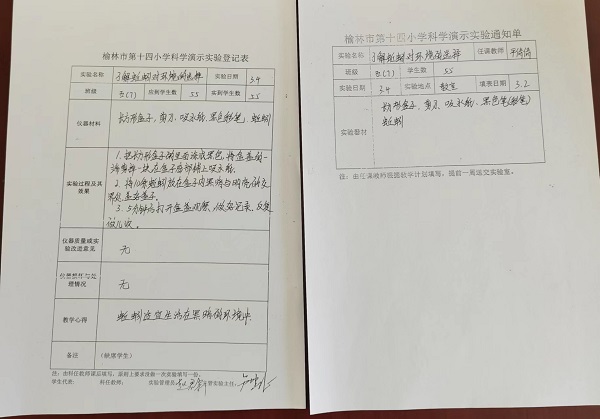 榆林市第十四小学科学演示实验登记表
实验名称 了解蚯蚓对环境的选择 实验日期 3.4
班级 五(7) 应到学生数 55 实到学生数 55
仪器材料 长方形盒子、剪刀、吸水纸、黑色 蚯蚓
实验过程及其效果
1. 把长方形盒子 里面涂成黑色,将盒盖
一块在盒子底部铺上吸水纸。
2. 将10条蚯蚓放在盒子内黑暗与明亮的交
界处,盖好盒子。
3. 5分钟后打开盒盖观察,做好记录,反复
做几次。
仪器质量或实验改进意见 无
仪器损坏与处理情况 无
教学心得 蚯蚓适宜生活在黑暗的环境中
备注 (缺席学生)
注:由科任教师课后填写,原则上要求进做一次实验填写一份。
学生代表: 科任教师: 实验管理员: 管实验主任:
榆林市第十四小学科学演示实验通知单
实验名称 了解蚯蚓对环境的选择 任课教师
班级 五(7) 学生数 55
实验日期 3.4 实验地点 教室 填表日期 3.2
实验器材 长方形盒子、剪刀、吸水纸、黑色
蚯蚓
注:由任课教师按照教学计划填写,提前一周送交实验室。